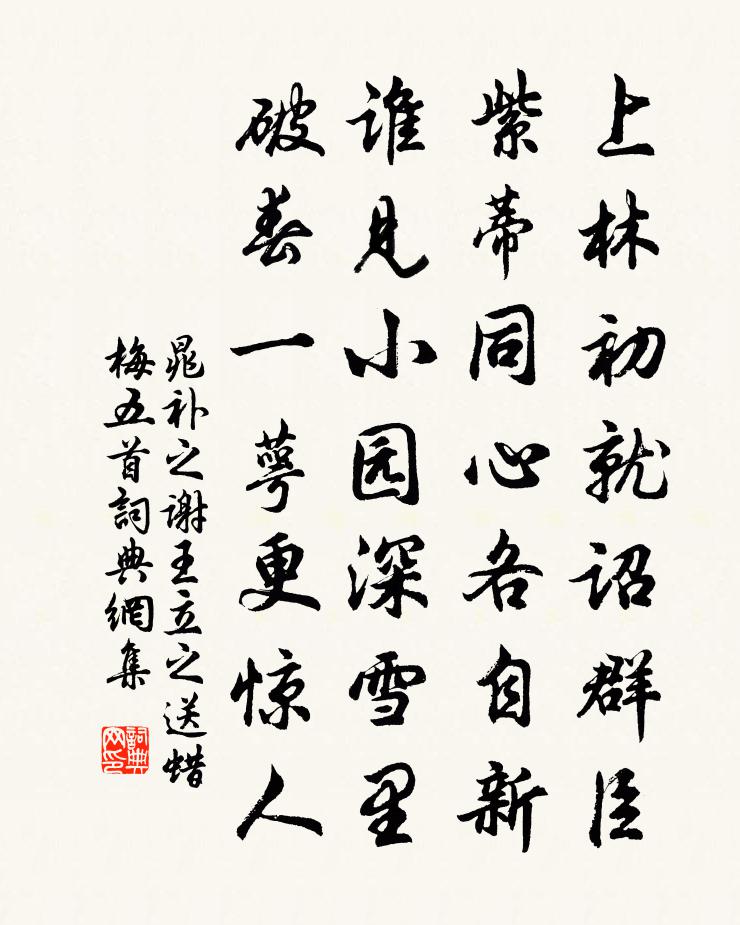 上林初就诏群臣
紫蒂同心各自新
谁见小园深雪里
破春一萼更惊人
晁补之谢王立之送蜡
梅五首詞典網集
詞典
网印